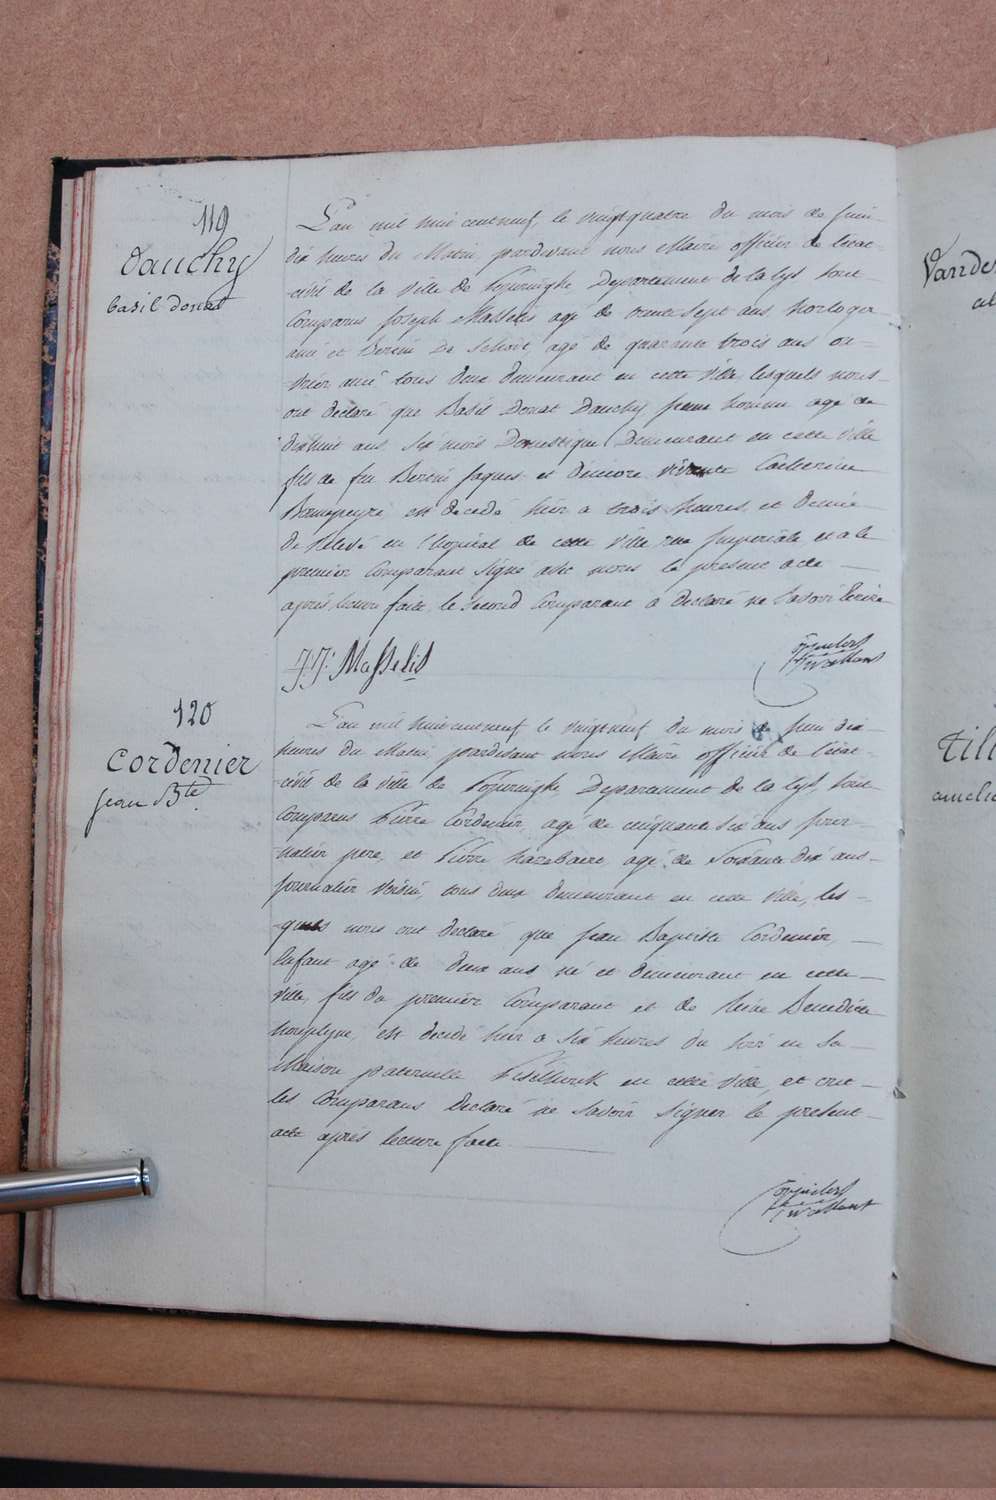 119
Dauchy
basil donat
L'an mil huit cent neuf, le vingt quatre du mois de juin
dix heures du Matin pardevant nous Maire officier de l'etat-
-civil de la ville de Poperinghe Departement de la Lys sont
Comparus Joseph Masselis agé de trente sept ans horloger
ami et Bernin De Schodt, agé de quarante trois ans ou-
-vrier ami tous deux demeurant en cette ville, lesquels nous-
ont declaré que Basil Donat Dauchy jeune homme agé de
dixhuit ans six mois Domestique Demeurant en cette ville
fils de feu Bernin Jaques et d'encore vivante Catherine
est decedé hier a trois heures et demie
de relevé en l'hopital de cette ville rue Imperiale, et a le
premier Comparant signé avec nous le present acte —
après lecture faite, le second Comparant a declaré ne savoir Ecrire
J:J: Masselis
120
Cordenier
jean Bte
L'an mil huit cent neuf le vingt neuf du mois de juin dix
heures du Matin pardevant nous Maire officier de l'etat-
-civil de la ville de Poperinghe Departement de la Lys, sont-
Comparus Pierre Cordenier, agé de cinquante six ans jour-
-nalier pere, et Pierre hazebaert agé de soixante dix ans-
journalier voisin, tous deux demeurant en cette ville, les-
-quels nous ont declaré que jean Baptiste Cordenier, —
Enfant agé de deux ans né et demeurant en cette —
ville, fils du premier Comparant et de Reine Benedicte
est decedé hier a six heures du soir en sa —
Maison paternelle en cette ville, et ont —
les Comparans declaré ne savoir signer le present
acte après lecture faite
Vander
al
Till
amelie